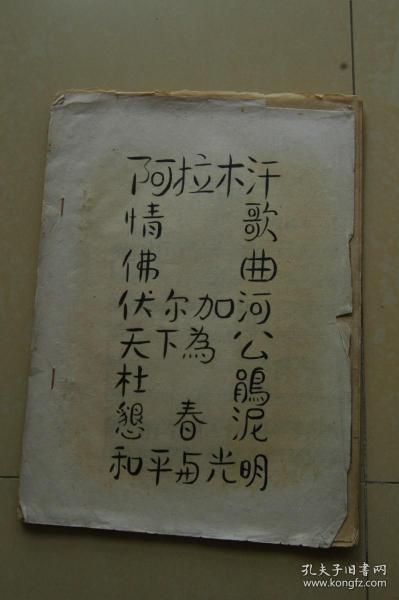 阿拉木汗
情 歌
佛 曲
伏尔加河
天下為公
杜 鵑
懇 春 泥
和平与光明
孔夫子旧书网
www.kongfz.com